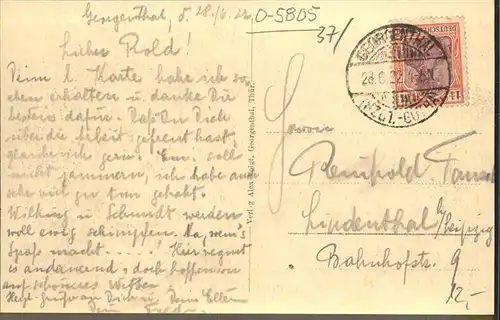 Georgenthal, d. 28./6. 22
O-5805
37/
Lieber Rold!
Deine l. Karte habe ich so
eben erhalten u. danke Dir
bestens dafür. Daß Du Dich
über die Arbeit gefreut hast,
glaube ich gern! Em. soll
nicht jammern, ich habe auch
sehr viel zu tun gehabt.
Wilking u. Schmidt werden
wohl ewig schimpfen. Na, wem's
Spaß macht - . . . ! Hier regnet
es andauernd, doch hoffen wir
auf schöneres Wetter.
Herzl. Grüße an Dich u. Deine Eltern
Dein Fredr.
Verlag Alex Georgenthal, Thür.
GEORGENTHAL
28.6.22.
(BZ. GOTHA)
Herrn
Reinhold
Lindenthal b/Leipzig
Bahnhofstr. 9
12,-